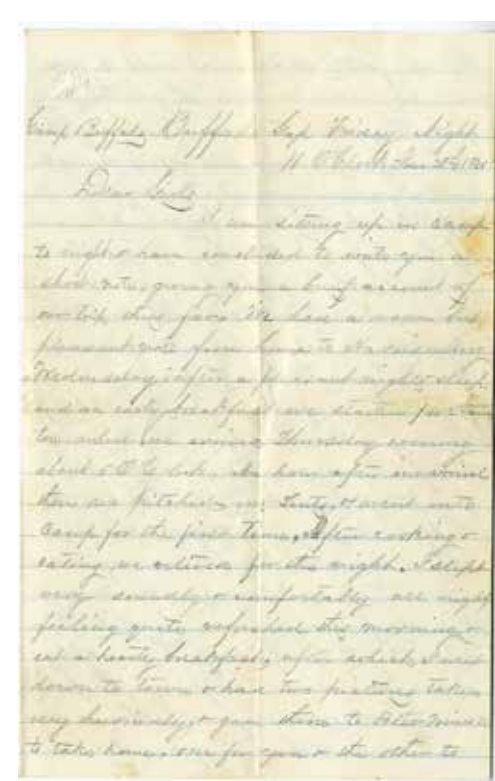 Camp Buffalo Gap Friday Night
11 O Clock
Dear
I am sitting up in camp
to night & have concluded to write you a
short note, giving you a brief account of
our trip thus far. We had a warm but
pleasant ride from home to
Wednesday, after a pleasant nights sleep
and an early breakfast we started for
ton where we arrived Thursday evening
about 5 O Clock. An hour after
there we pitched our Tents, & went into
Camp for the first time, after cooking &
eating we retired for the night. I slept
very soundly & comfortably all night
feeling quite refreshed this morning &
eat a hearty breakfast, after which I went
down to town & had two pictures taken
very hurriedly & gave them to
to take home, one for you & the other to